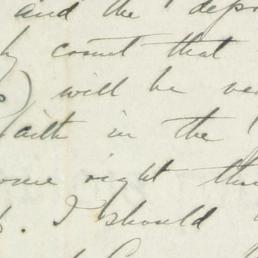 and the dep
that
) will be ve
aith in the
ome right thi
. I should